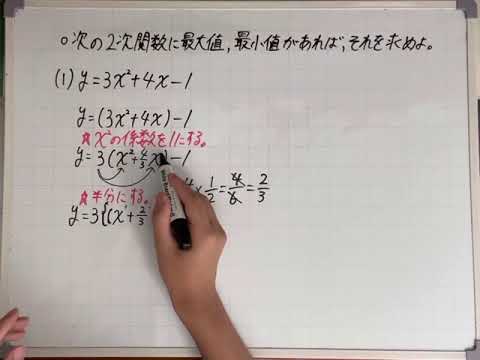 ○次の2次関数に最大値,最小値があれば,それを求めよ。
(1) y=3x²+4x-1
y=(3x²+4x)-1
☆x²の係数を1にする。
y=3(x²+4/3x)-1
☆半分にする。
×1/2=4/6=2/3
y=3{(x+2/3